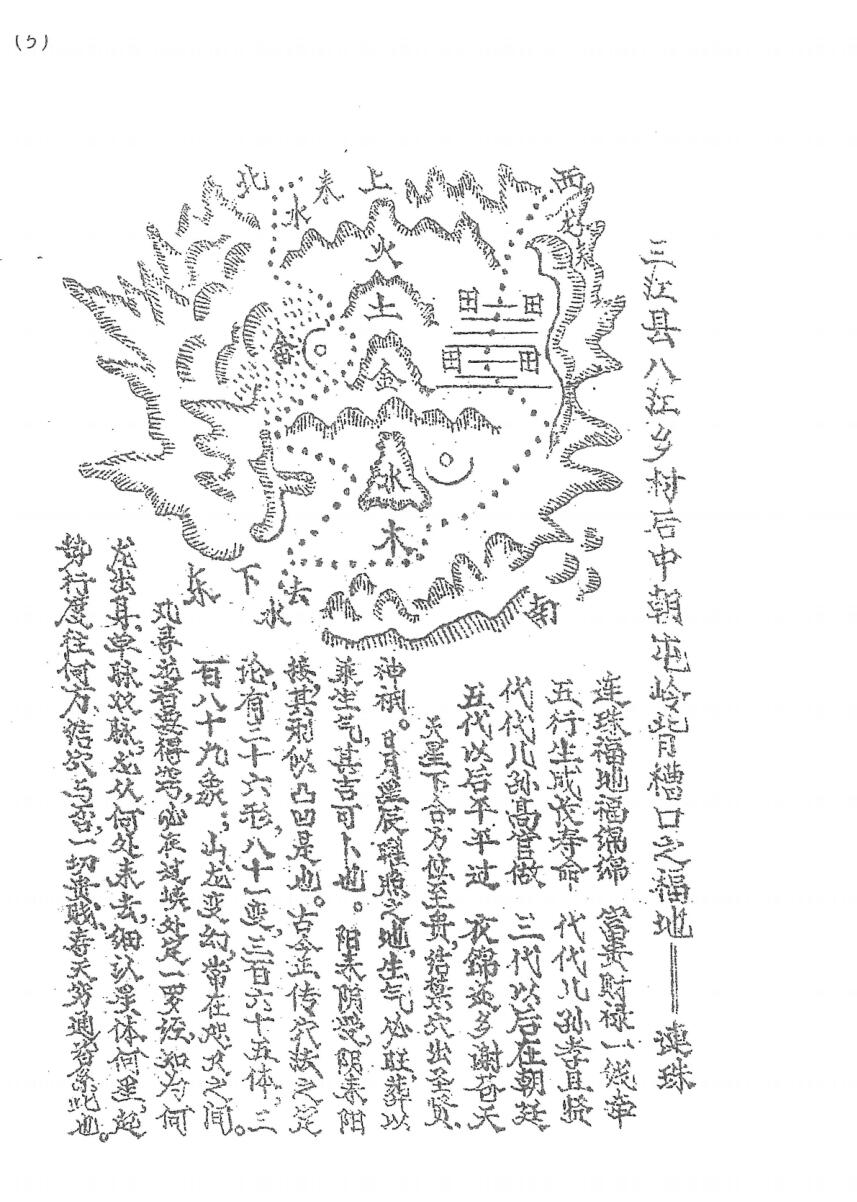 (5)
三江县八江乡村后中朝屯岭背糟口之福地——连珠
连珠福地福绵绵 富贵财禄一线牵
五行生成长寿命 代代儿孙孝且贤
代代儿孙高官做 三代以后在朝廷
五代以后平平过 衣锦还乡谢苍天
天星下合方位至贵,结禁穴出圣贤
神祠。日月星辰曜照之地,生气必旺,葬以
乘生气,其吉可卜也。阳来阴受,阴来阳
接,其形似凸凹是也。古今正传穴法之定
论,有三十六形,八十一变,三百六十五体,三
百八十九象;山龙变幻,常在咫尺之间。
凡寻龙者要得窍,必在过峡处定一罗经,如为何
龙出身,单脉双脉,龙从何处来去,细认星体何星起
势行度往何方结穴与否,一切贵贱寿夭穷通皆系此也。
北
水来上
西
龙来
火
土
金
田 田
田 田
水
木
东
下
水去
南